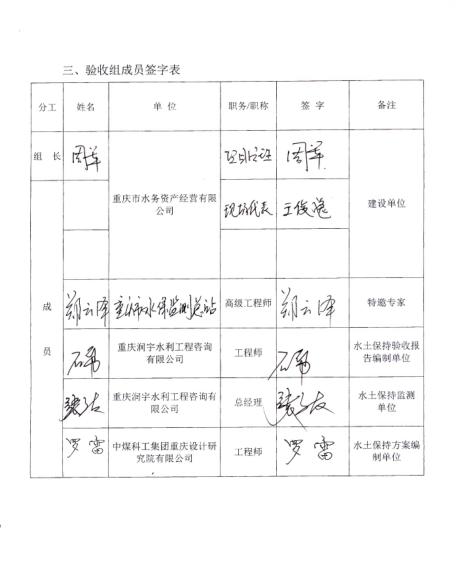 三、验收组成员签字表
分工 姓名 单 位 职务/职称 签 字 备注
组 长 周军 重庆市水务资产经营有限公司 周军 建设单位
现场代表
成员
郑云泽 重庆市水保监测总站 高级工程师 郑云泽 特邀专家
石勇 重庆润宇水利工程咨询有限公司 工程师 石勇 水土保持验收报告编制单位
重庆润宇水利工程咨询有限公司 总经理 水土保持监测单位
罗雷 中煤科工集团重庆设计研究院有限公司 工程师 罗雷 水土保持方案编制单位